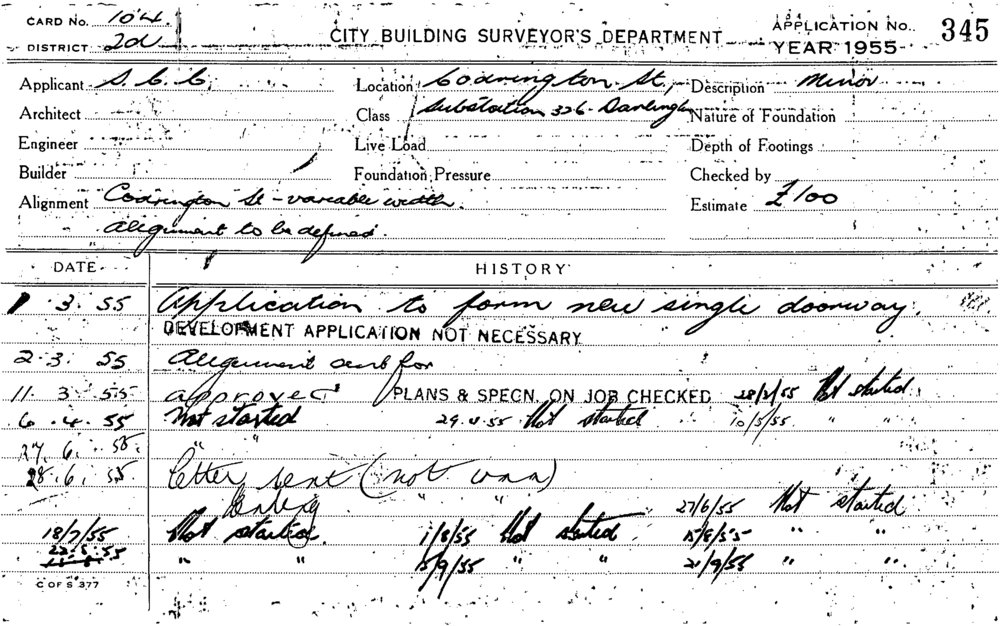 CARD No. 104
DISTRICT 2d
CITY BUILDING SURVEYOR'S DEPARTMENT
APPLICATION No. 345
YEAR 1955
Applicant S.C.C. Location Codrington St., Description Minor
Architect Class Substation 326 Darlingh Nature of Foundation
Engineer Live Load Depth of Footings
Builder Foundation Pressure Checked by
Alignment Codrington St - variable width. Estimate £100
Alignment to be defined.
DATE HISTORY
1.3.55 Application to form new single doorway.
DEVELOPMENT APPLICATION NOT NECESSARY
2.3.55 Alignment sent for
11.3.55 approved PLANS & SPECN. ON JOB CHECKED 28/3/55 Not started
6.4.55 Not started 29.4.55 Not started 10/5/55 " "
27.6.55. " "
28.6.55 letter sent (not
" " 27/6/55 Not started
18/7/55 Not started. 1/8/55 Not started. 15/8/55 " "
22.8.55 " " 5/9/55 " " 21/9/55 " "
C OF S 377